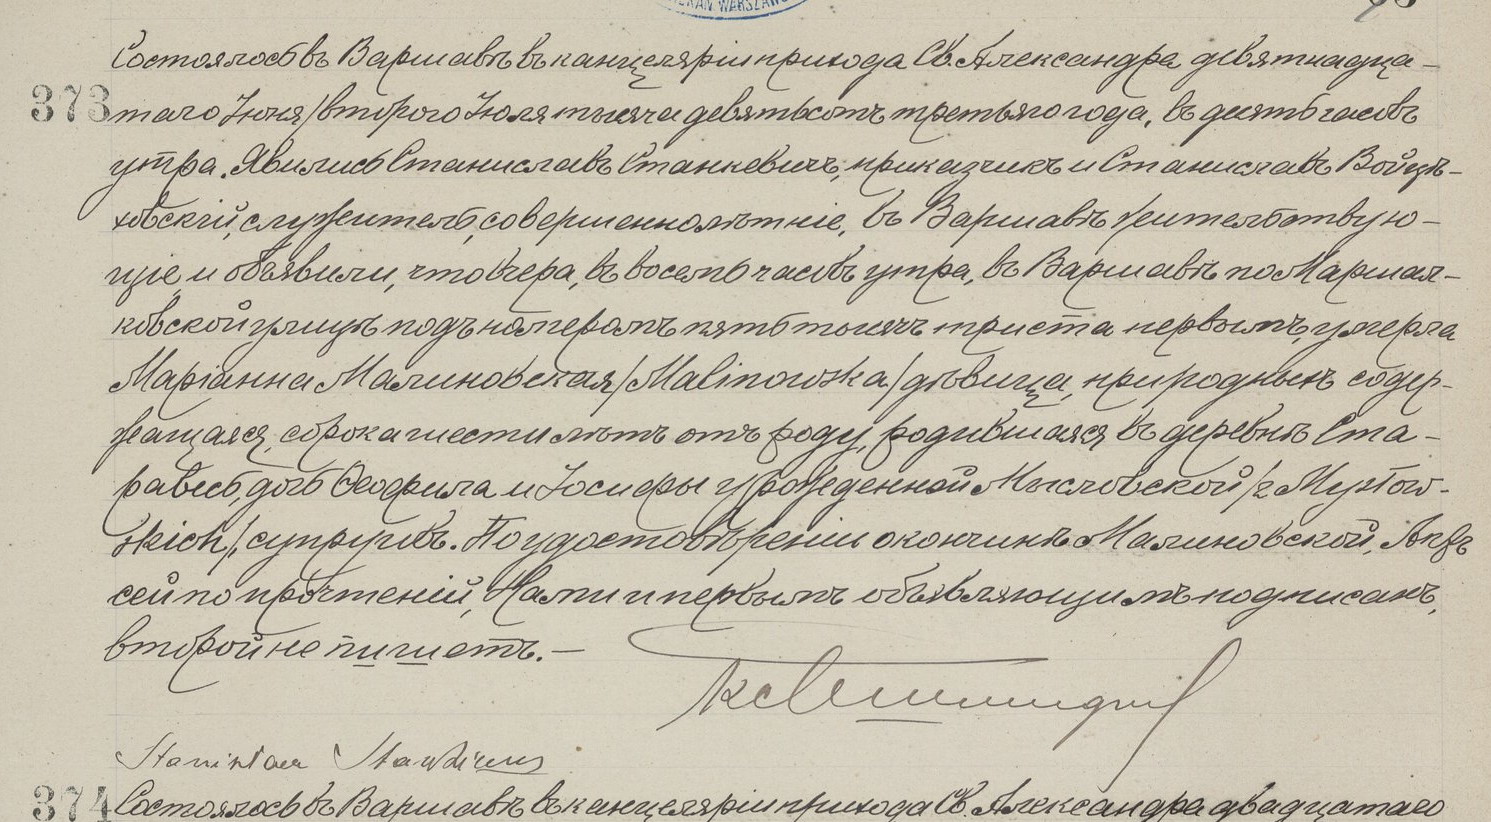 ZEKAN WARSZAW
Состоялось въ Варшавѣ въ канцеляріи прихода Св. Александра девятнадца-
373
таго Іюня/второго Іюля тысяча девятьсотъ третьяго года, въ десять часовъ
утра. Явились Станиславъ Станкевичъ, приказчикъ и Станиславъ Войцѣ-
ховскій, служитель, совершеннолѣтніе, въ Варшавѣ жительствую-
щіе и объявили, что вчера, въ восемь часовъ утра, въ Варшавѣ по Маршал-
ковской улицѣ подъ номеромъ пять тысячъ триста первымъ, умерла
Маріанна Малиновская /Malinowska/ дѣвица, при родныхъ содер-
жащаяся, сорока шести лѣтъ отъ роду, родившаяся въ деревнѣ Ста-
равесь, дочь Ѳеофила и Іосифы урожденной Мысловской /z Mysłow-
skich/, супруговъ. По удостовѣреніи о кончинѣ Малиновской, Актъ
сей по прочтеніи, Нами и первымъ объявляющимъ подписанъ,
второй не пишетъ. —
Stanisław Stankiewicz
374
Состоялось въ Варшавѣ въ канцеляріи прихода Св. Александра двадцатаго